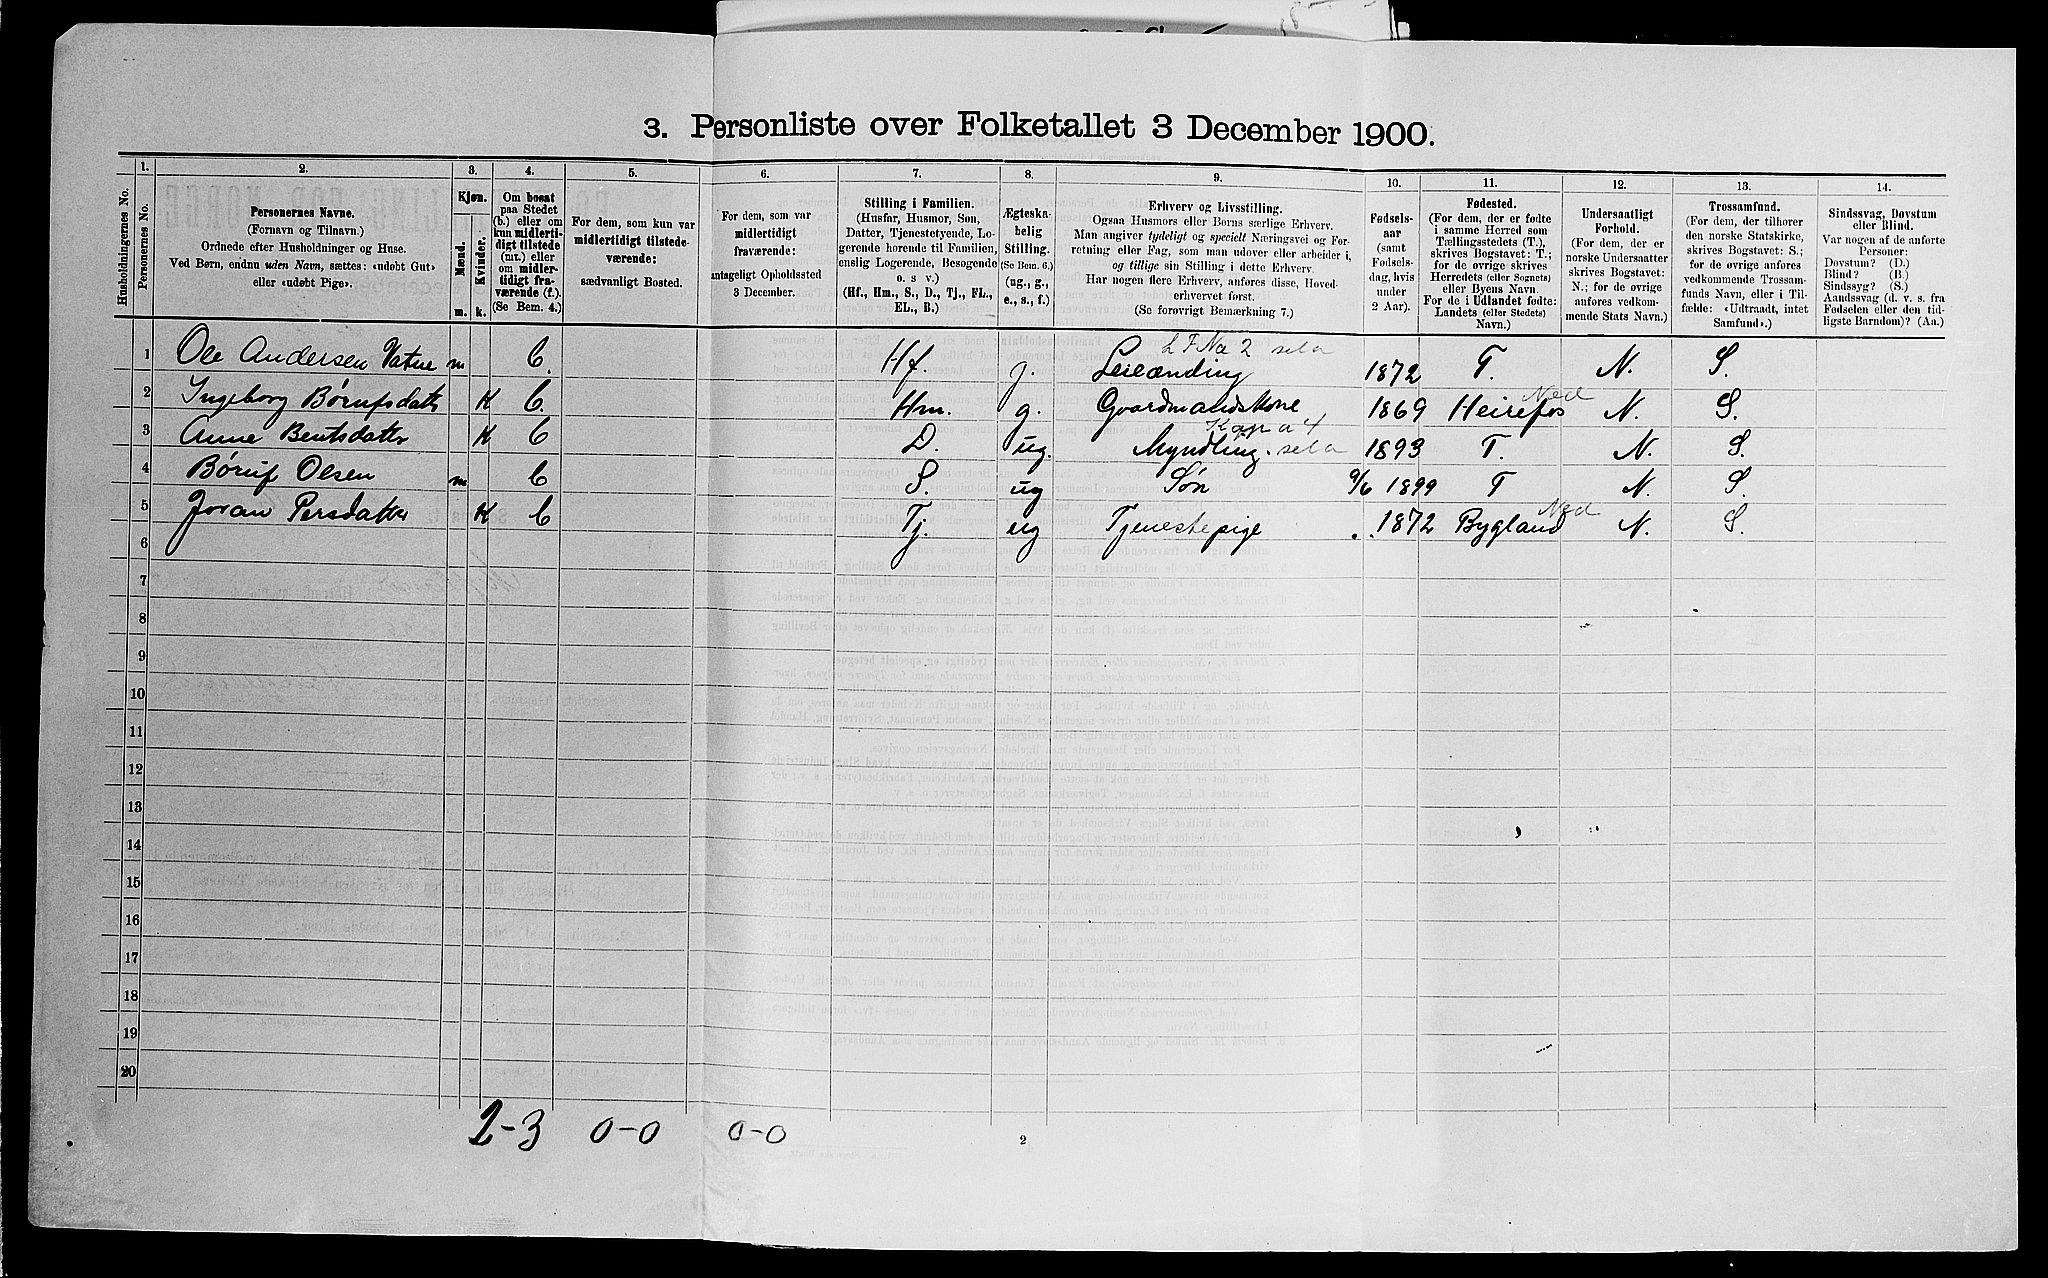 3. Personliste over Folketallet 3 December 1900.
Husholdningernes No.
1.
Personernes No.
2.
Personernes Navne.
(Fornavn og Tilnavn.)
Ordnede efter Husholdninger og Huse.
Ved Børn, endnu uden Navn, sættes: «udøbt Gut»
eller «udøbt Pige».
3.
Kjøn.
Mænd.
Kvinder.
m.
k.
4.
Om bosat
paa Stedet
(b.) eller om
kun midlerti-
digt tilstede
(mt.) eller
om midler-
tidigt fra-
værende (f.)
(Se Bem. 4.)
5.
For dem, som kun var
midlertidigt tilstede-
værende:
sædvanligt Bosted.
6.
For dem, som var
midlertidigt
fraværende:
antageligt Opholdssted
3 December.
7.
Stilling i Familien.
(Husfar, Husmor, Søn,
Datter, Tjenestetyende, Lo-
gerende hørende til Familien,
enslig Logerende, Besøgende
o. s v.)
(Hf., Hm., S., D., Tj., FL.,
EL., B.)
8.
Ægteska-
belig
Stilling.
(Se Bem. 6.)
(ug., g.,
e., s., f.)
9.
Erhverv og Livsstilling.
Ogsaa Husmors eller Børns særlige Erhverv.
Man angiver tydeligt og specielt Næringsvei og For-
retning eller Fag, som man udover eller arbeider i,
og tillige sin Stilling i dette Erhverv.
Har nogen flere Erhverv, anføres disse, Hoved-
erhvervet først.
(Se forøvrigt Bemærkning 7.)
10.
Fødsels-
aar
(samt
Fødsels-
dag, hvis
under
2 Aar).
11.
Fødested.
(For dem, der er fødte
i samme Herred som
Tællingsstedets (T.),
skrives Bogstavet: T.;
for de øvrige skrives
Herredets (eller Sognets)
eller Byens Navn.
For de i Udlandet fødte:
Landets (eller Stedets)
Navn.)
12.
Undersaatligt
Forhold.
(For dem, der er
norske Undersaatter
skrives Bogstavet:
N.; for de øvrige
anføres vedkom-
mende Stats Navn.)
13.
Trossamfund.
(For dem, der tilhører
den norske Statskirke,
skrives Bogstavet: S.;
for de øvrige anføres
vedkommende Trossam-
funds Navn, eller i Til-
fælde: «Udtraadt, intet
Samfund».)
14.
Sindssvag, Døvstum
eller Blind.
Var nogen af de anførte
Personer:
Døvstum? (D.)
Blind? (B.)
Sindssyg? (S.)
Aandssvag (d. v. s. fra
Fødselen eller den tid-
ligste Barndom)? (Aa.)
L F No 2 sela
1 Ole Andersen Vatne m b. Hf. g. Leilænding 1872 T. N. S.
Ned
2 Ingeborg Børufsdatr K b. Hm. g. Gaardmandskone 1869 Heirefos N. S.
3 Anne Bentsdatr K b D. ug. Myndling. sela 1893 T. N. S.
4 Børuf Olsen m b S. ug Søn 9/6 1899 T N. S.
Ned
5 Joran Persdatter K b Tj. ug Tjenestepige 1872 Bygland N. S.
6
7
8
9
10
11
12
13
14
15
16
17
18
19
20
2-3 0-0 0-0
2